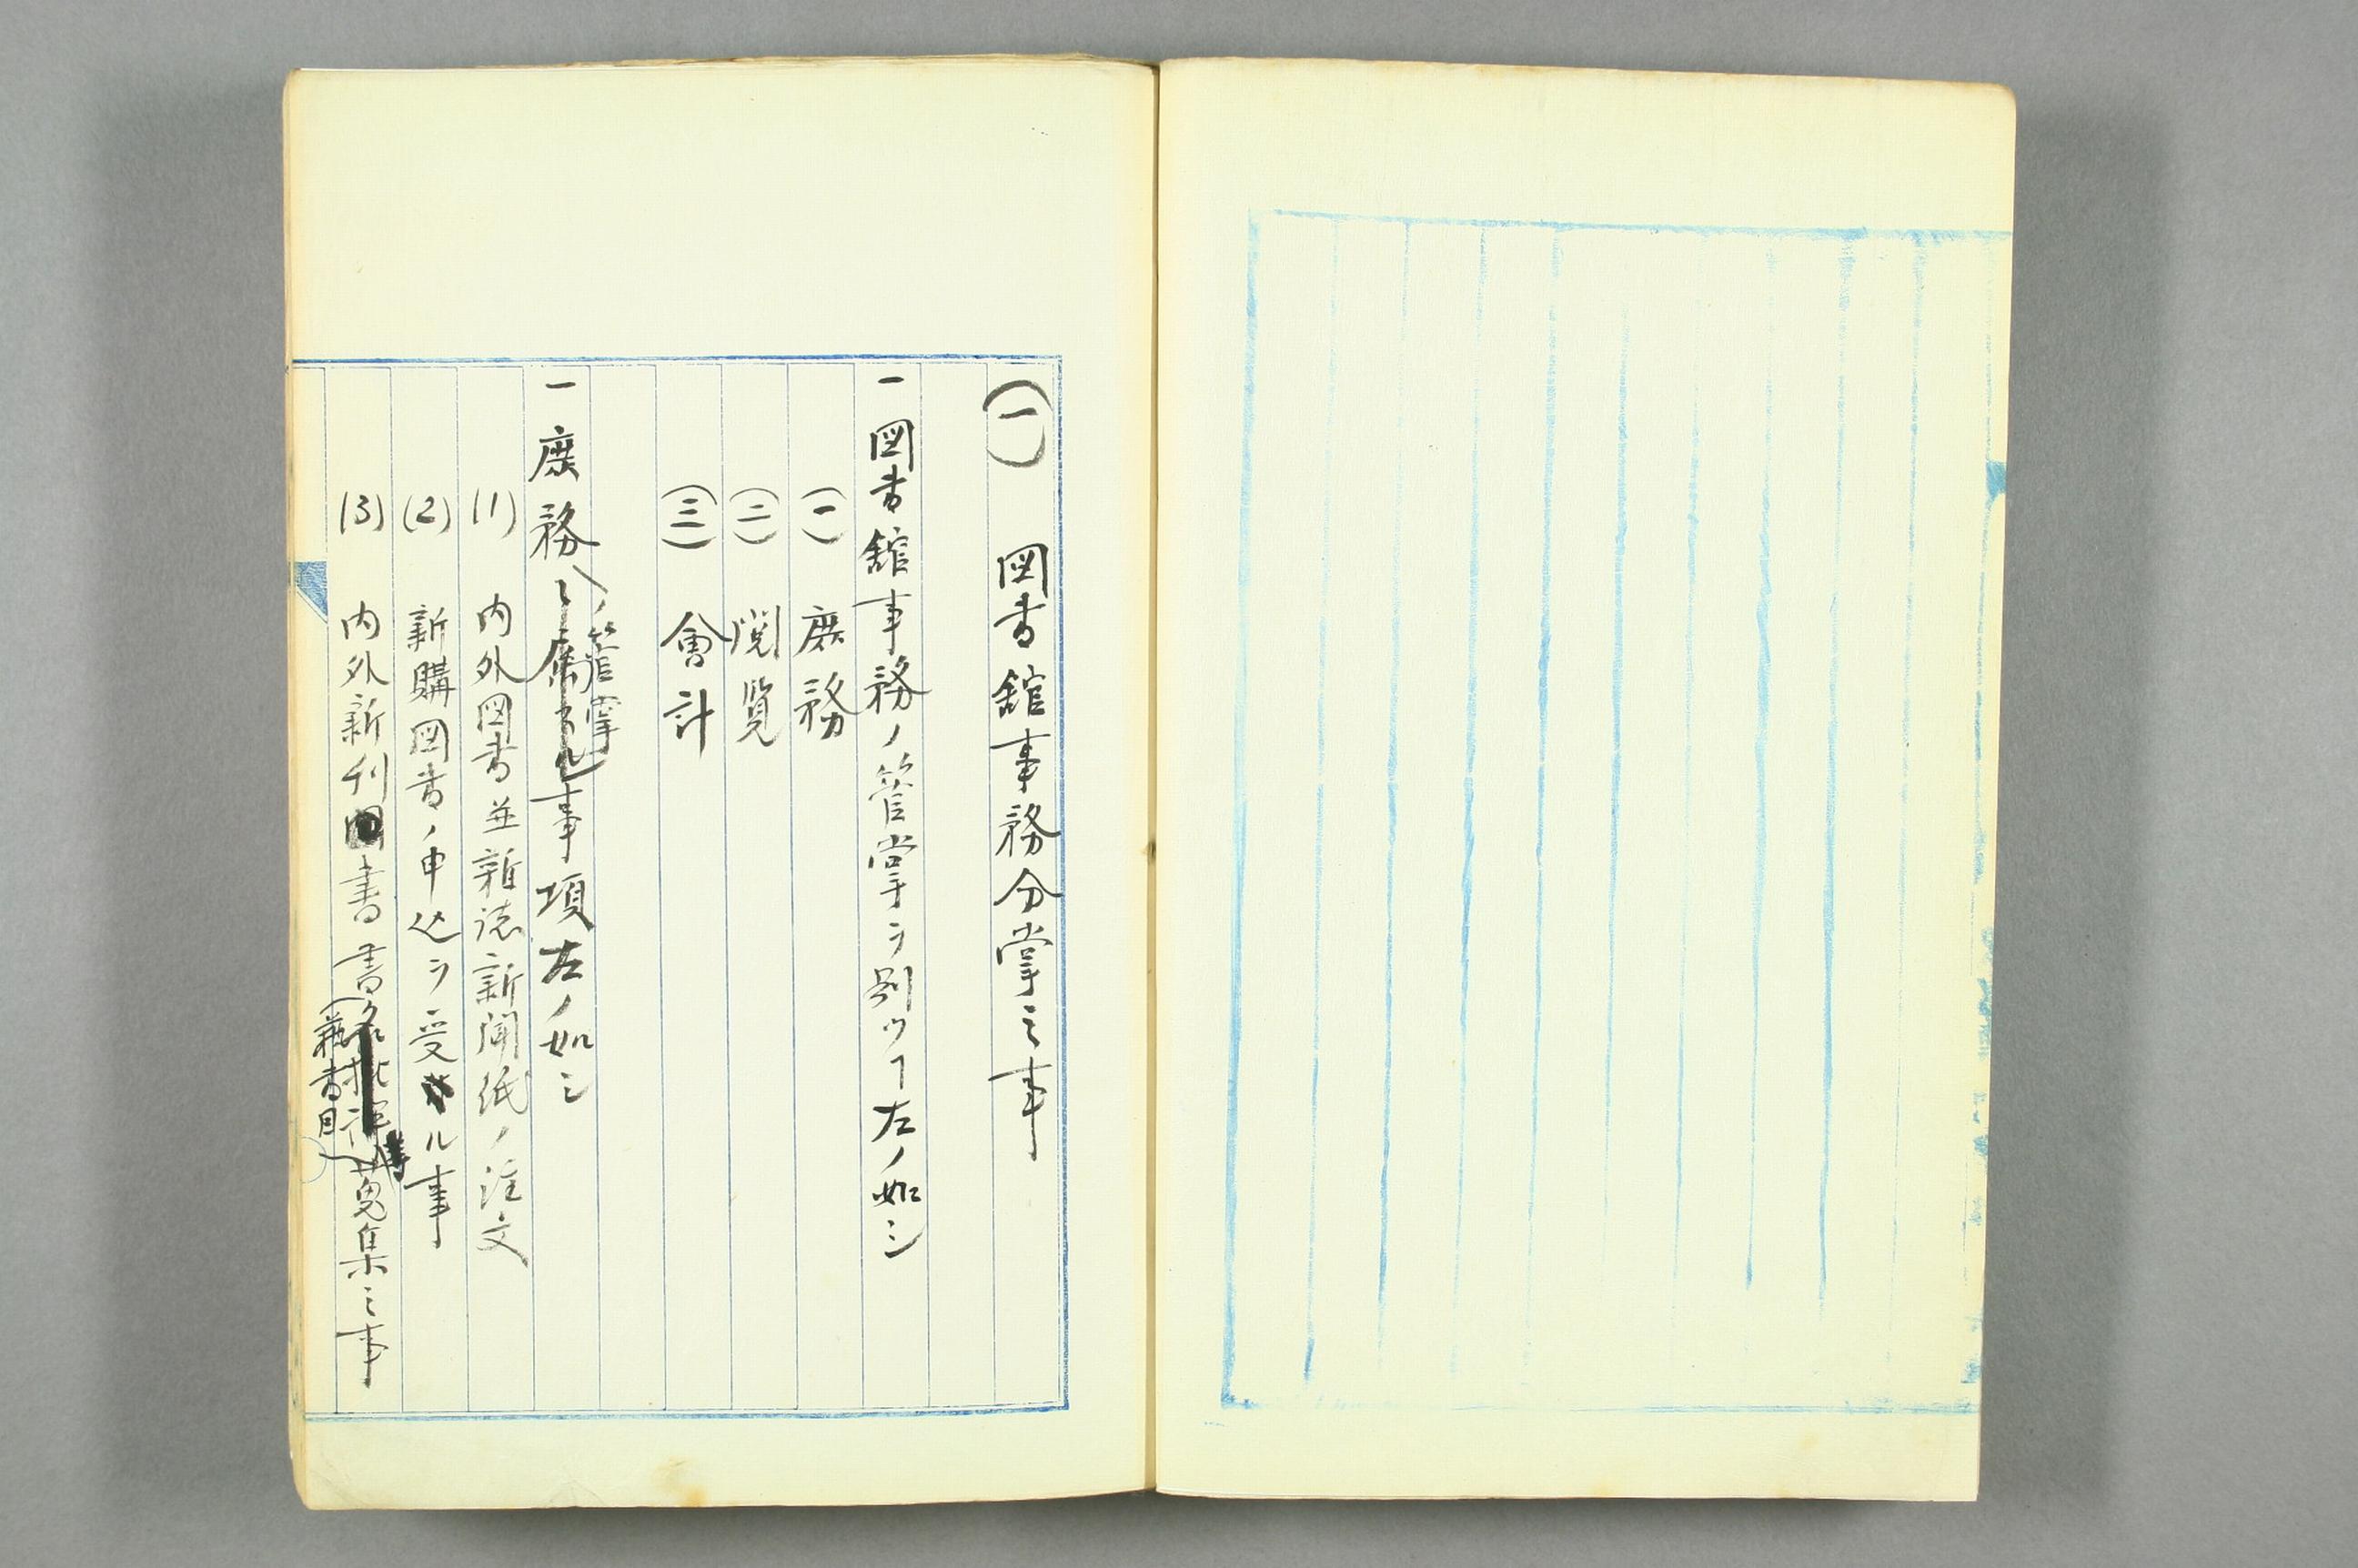 (一) 図書舘事務分掌之事
一 図書舘事務ノ管掌ヲ別ツヿ左ノ如シ
(一) 庶務
(二) 閲覧
(三) 會計
一 庶務ノ管掌事項左ノ如シ
(1) 内外図書並雑誌新聞紙ノ注文
(2) 新購図書ノ申込ヲ受クル事
(3) 内外新刊図書書名蒐集之事